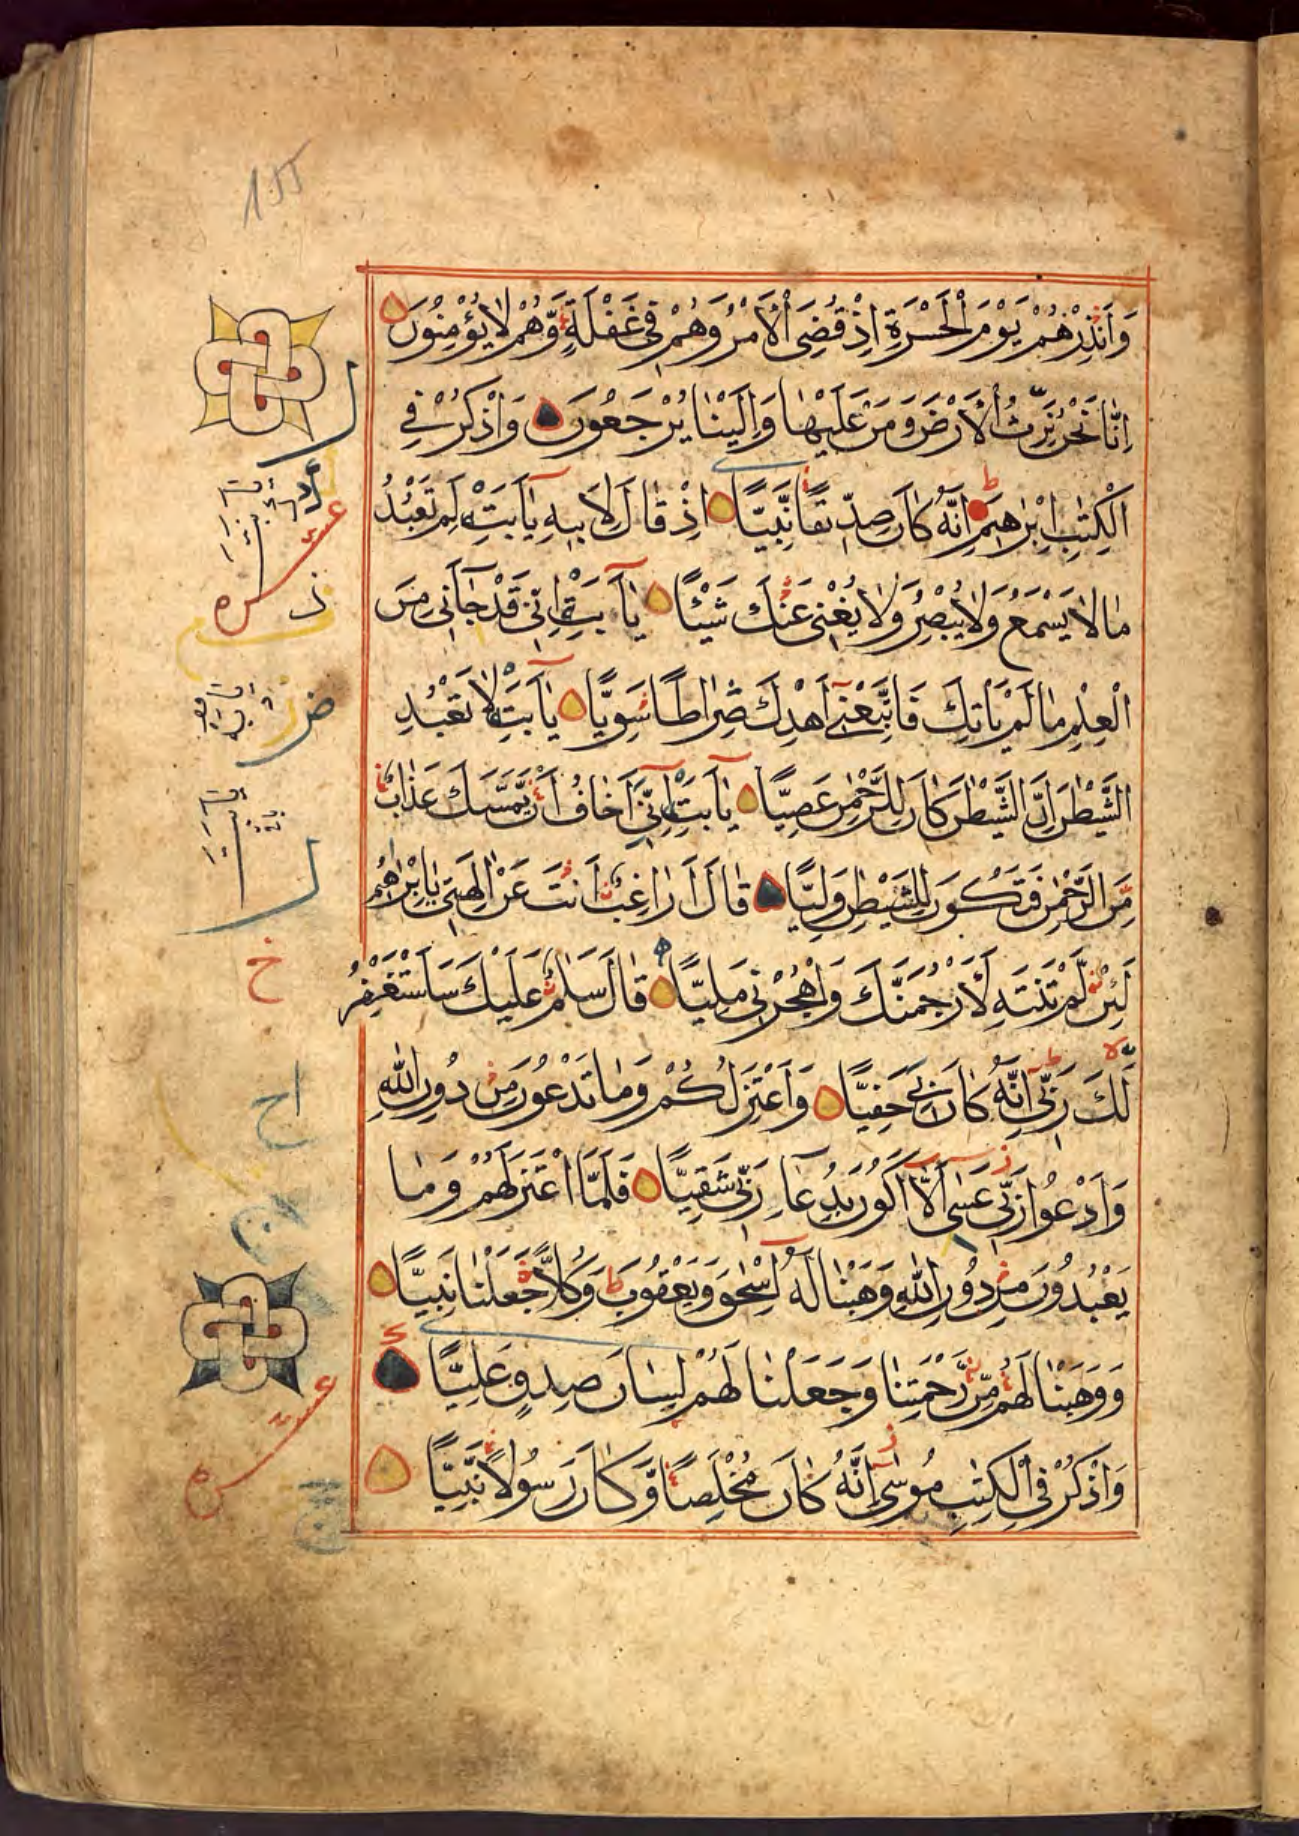 155
وَأَنْذِرْهُمْ يَوْمَ الْحَسْرَةِ إِذْ قُضِىَ الْأَمْرُ وَهُمْ فِى غَفْلَةٍ وَّهُمْ لَا يُؤْمِنُونَ
إِنَّا نَحْنُ نَرِثُ الْأَرْضَ وَمَنْ عَلَيْهَا وَإِلَيْنَا يُرْجَعُونَ وَاذْكُرْ فِي
الْكِتٰبِ إِبْرٰهِيمَ إِنَّهُ كَانَ صِدِّيقًا نَّبِيًّا إِذْ قَالَ لِأَبِيهِ يَا أَبَتِ لِمَ تَعْبُدُ
مَا لَا يَسْمَعُ وَلَا يُبْصِرُ وَلَا يُغْنِى عَنْكَ شَيْئًا يَا أَبَتِ إِنِّى قَدْ جَآءَنِى مِنَ
الْعِلْمِ مَا لَمْ يَأْتِكَ فَاتَّبِعْنِى أَهْدِكَ صِرَاطًا سَوِيًّا يَا أَبَتِ لَا تَعْبُدِ
الشَّيْطٰنَ إِنَّ الشَّيْطٰنَ كَانَ لِلرَّحْمٰنِ عَصِيًّا يَا أَبَتِ إِنِّى أَخَافُ أَنْ يَّمَسَّكَ عَذَابٌ
مِّنَ الرَّحْمٰنِ فَتَكُونَ لِلشَّيْطٰنِ وَلِيًّا قَالَ أَرَاغِبٌ أَنْتَ عَنْ اٰلِهَتِى يَا إِبْرٰهِيمُ
لَئِنْ لَّمْ تَنْتَهِ لَأَرْجُمَنَّكَ وَاهْجُرْنِى مَلِيًّا قَالَ سَلَامٌ عَلَيْكَ سَأَسْتَغْفِرُ
لَكَ رَبِّى إِنَّهُ كَانَ بِى حَفِيًّا وَأَعْتَزِلُكُمْ وَمَا تَدْعُونَ مِنْ دُونِ اللّٰهِ
وَأَدْعُوا رَبِّى عَسٰى أَلَّا أَكُونَ بِدُعَآءِ رَبِّى شَقِيًّا فَلَمَّا اعْتَزَلَهُمْ وَمَا
يَعْبُدُونَ مِنْ دُونِ اللّٰهِ وَهَبْنَا لَهُ إِسْحٰقَ وَيَعْقُوبَ وَكُلًّا جَعَلْنَا نَبِيًّا
وَوَهَبْنَا لَهُمْ مِّنْ رَّحْمَتِنَا وَجَعَلْنَا لَهُمْ لِسَانَ صِدْقٍ عَلِيًّا
وَاذْكُرْ فِى الْكِتٰبِ مُوسٰى إِنَّهُ كَانَ مُخْلَصًا وَّكَانَ رَسُولًا نَّبِيًّا